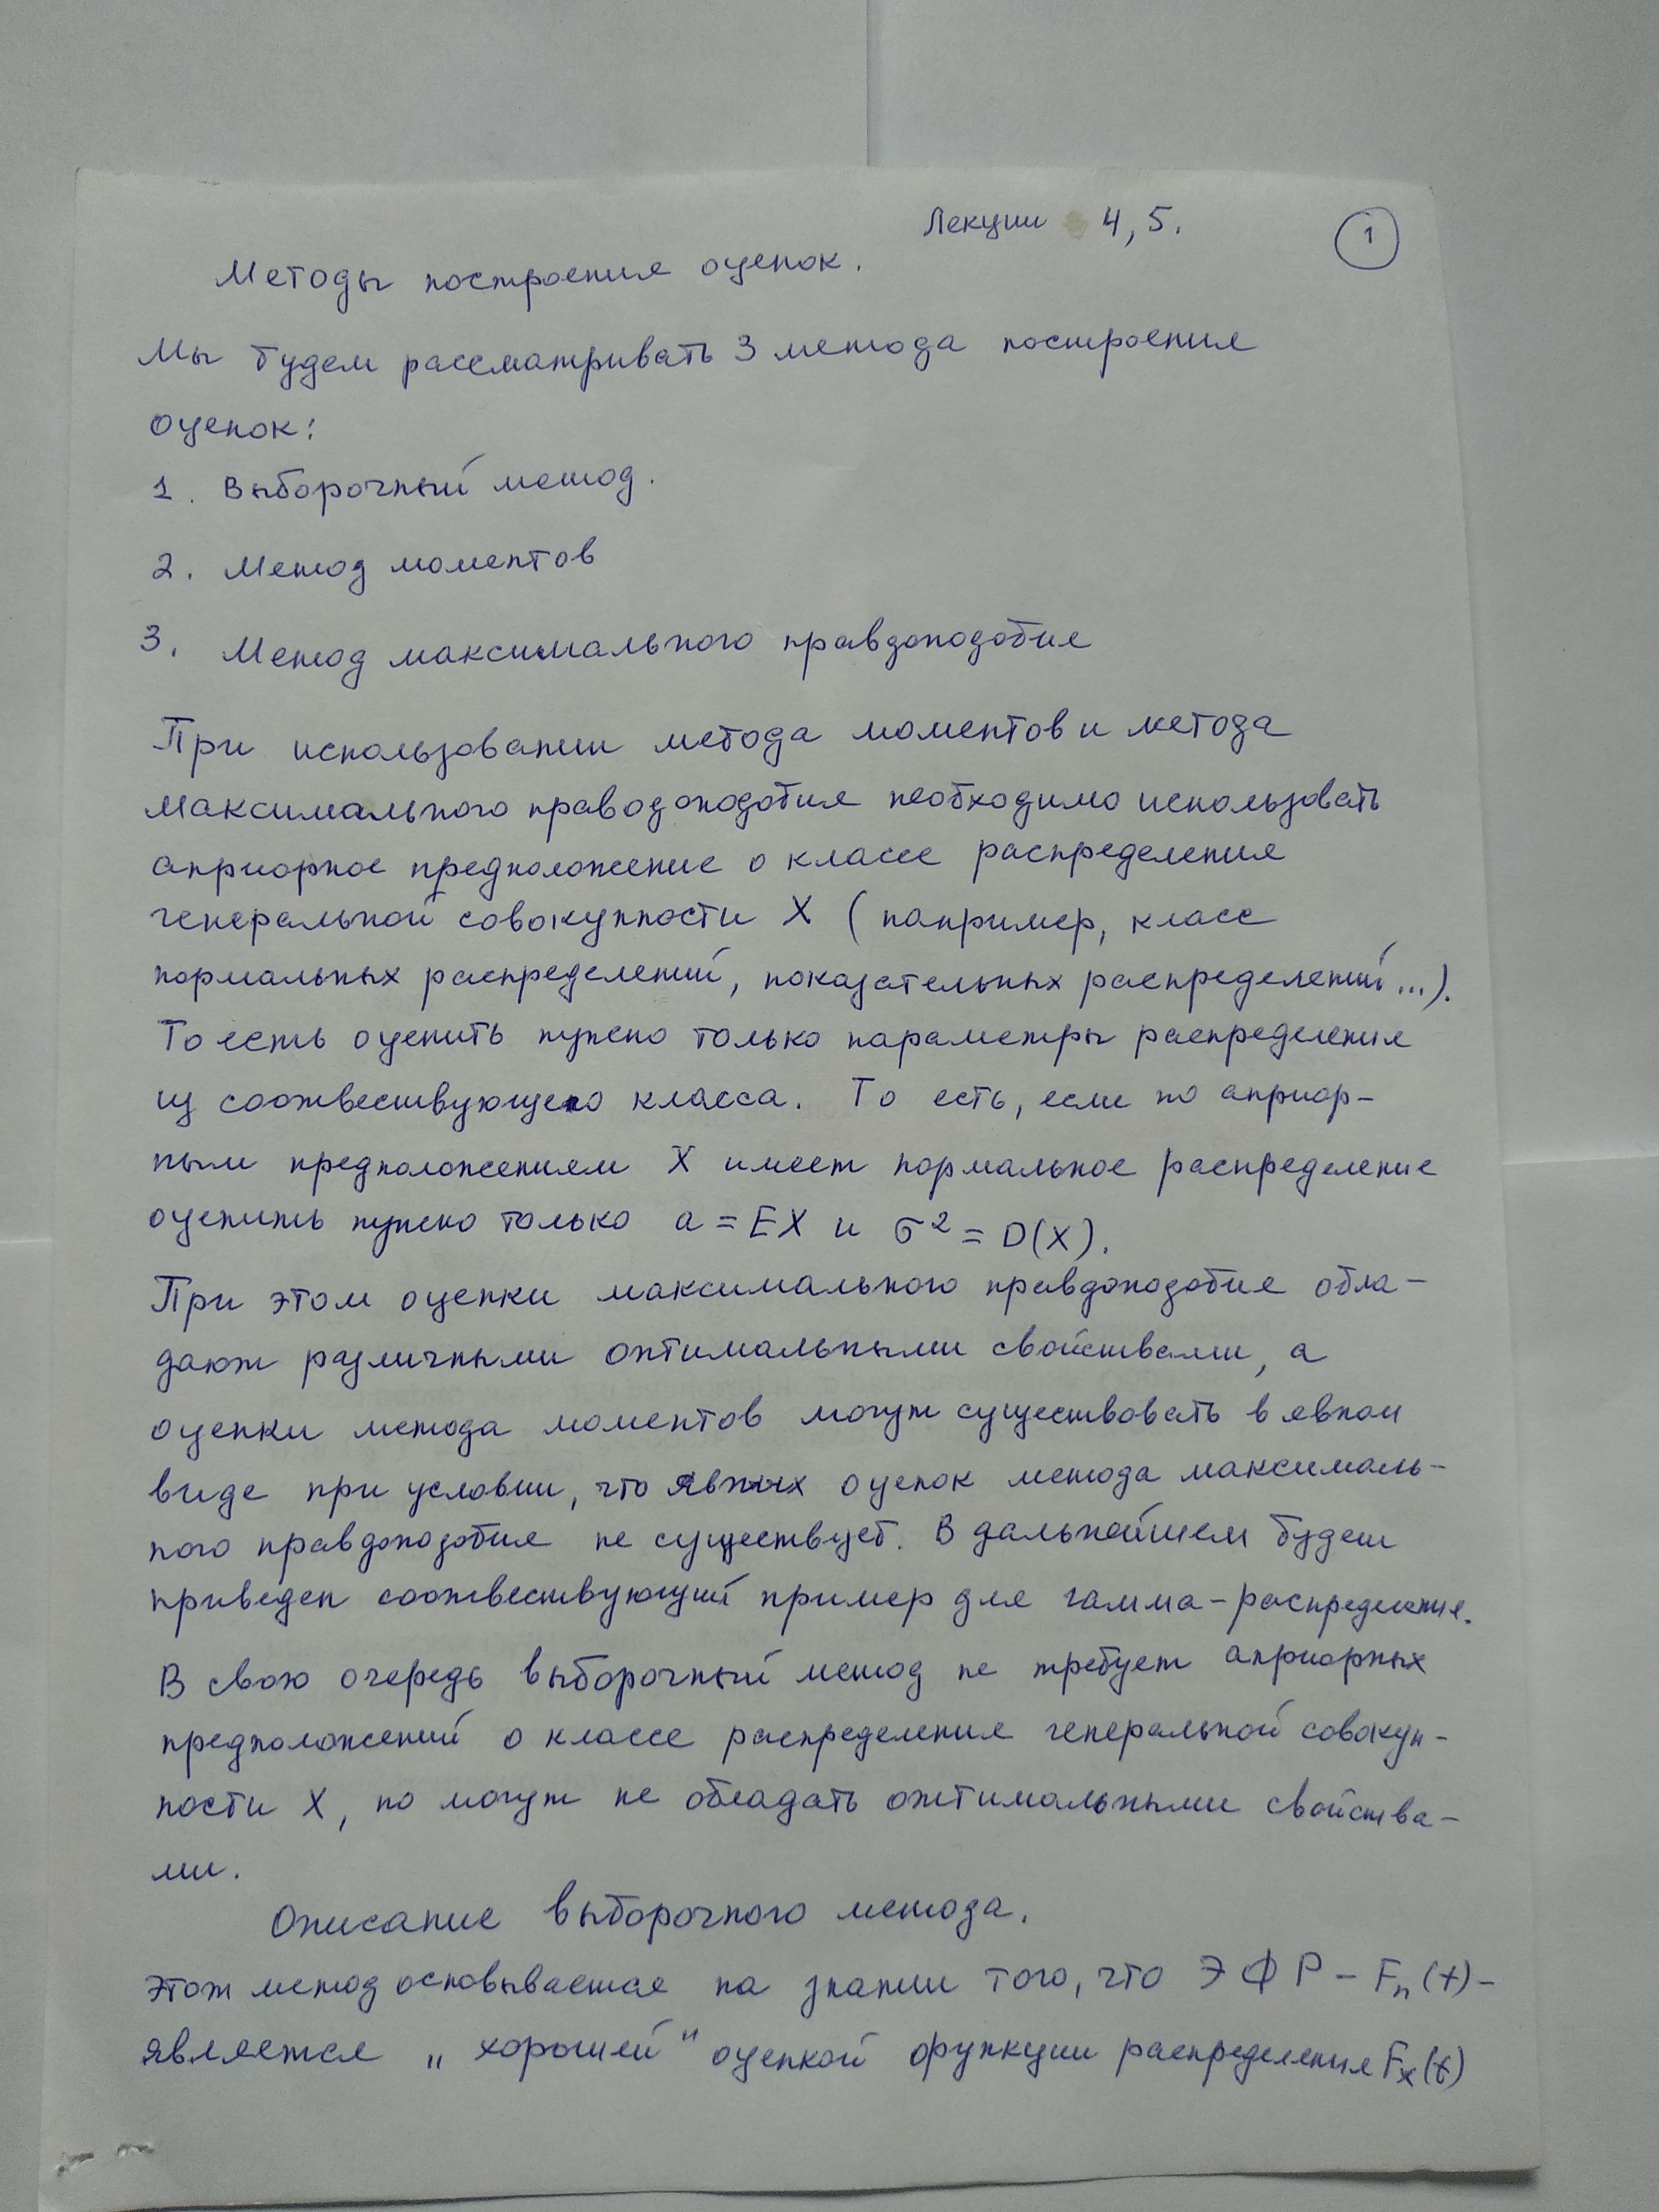 Лекции 4, 5.
1
Методы построения оценок.
Мы будем рассматривать 3 метода построения
оценок:
1. Выборочный метод.
2. Метод моментов
3. Метод максимального правдоподобия
При использовании метода моментов и метода
максимального праводоподобия необходимо использовать
априорное предположение о классе распределения
генеральной совокупности X (например, класс
нормальных распределений, показательных распределений...).
То есть оценить нужно только параметры распределения
из соотвествующего класса. То есть, если по априор-
ным предположениям X имеет нормальное распределение
оценить нужно только a = EX и σ² = D(X).
При этом оценки максимального правдоподобия обла-
дают различными оптимальными свойствами, а
оценки метода моментов могут существовать в явном
виде при условии, что явных оценок метода максималь-
ного правдоподобия не существует. В дальнейшем будет
приведен соотвествующий пример для гамма-распределения.
В свою очередь выборочный метод не требует априорных
предположений о классе распределения генеральной совокуп-
ности X, но могут не обладать оптимальными свойства-
ми.
Описание выборочного метода.
Этот метод основывается на знании того, что ЭФР - Fₙ(t) -
является „хорошей" оценкой функции распределения Fₓ(t)